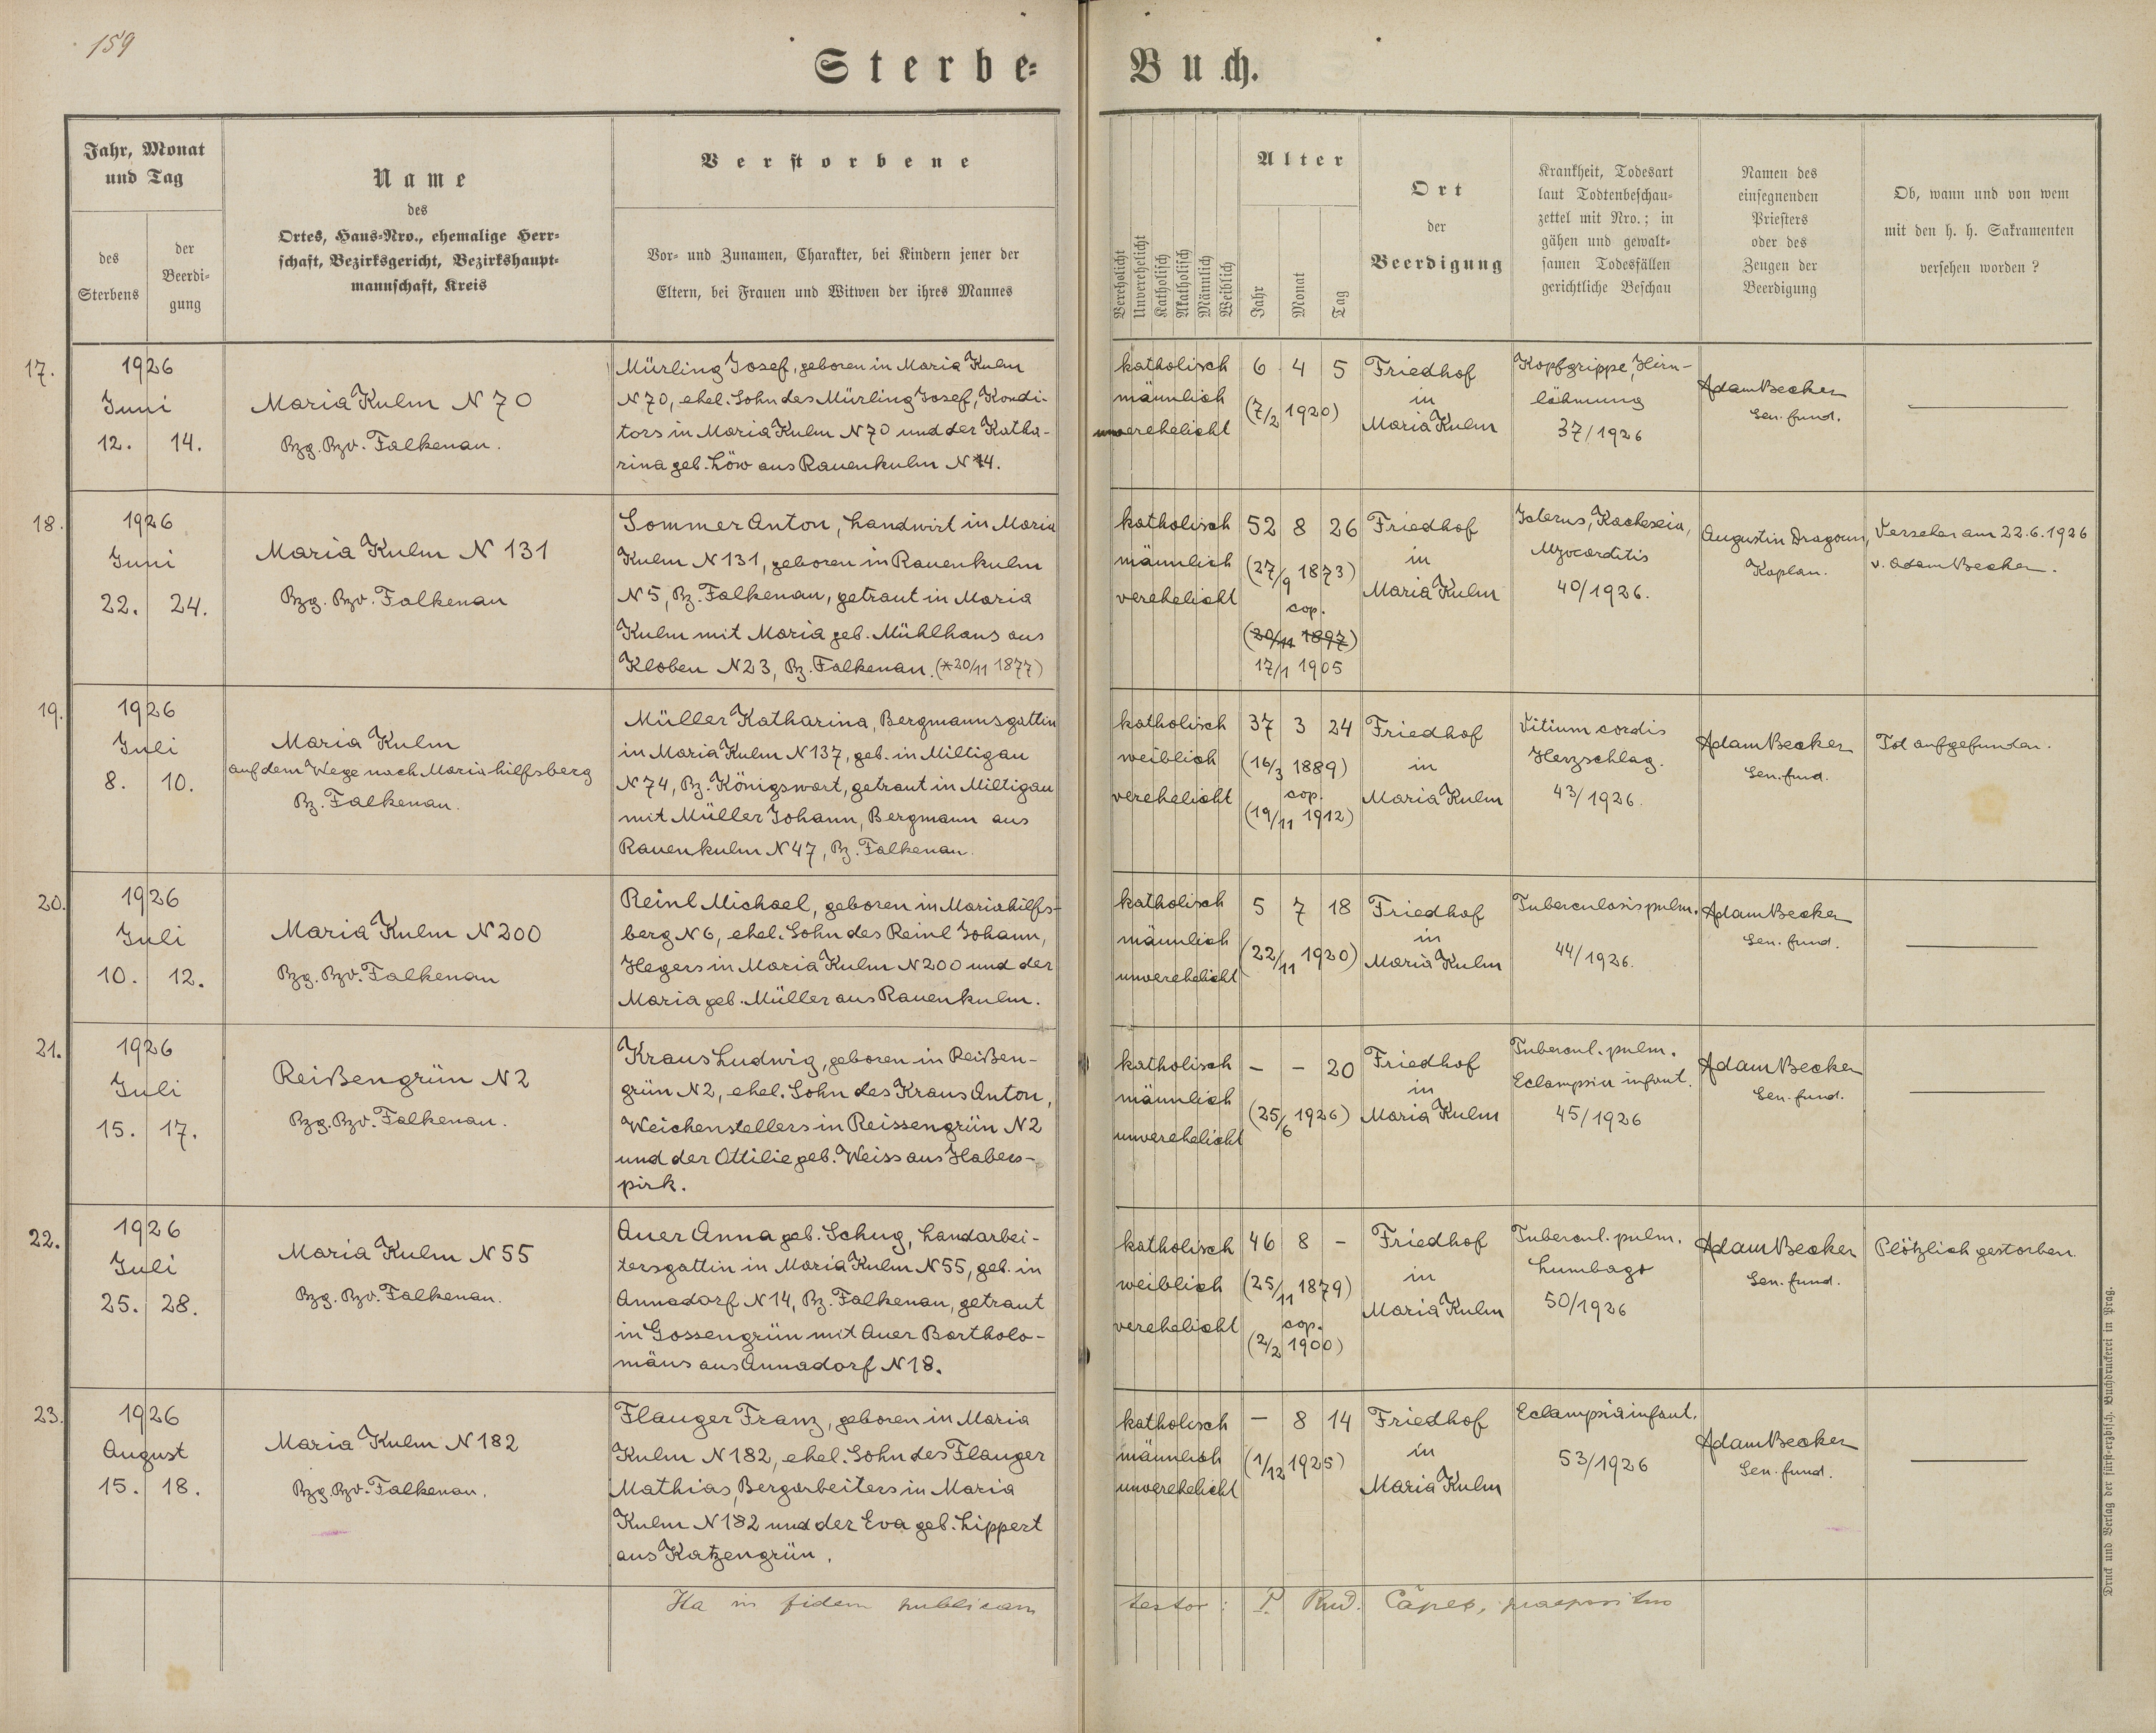 159
Sterbe-
Buch.
Jahr, Monat
und Tag
des
Sterbens
der
Beerdi-
gung
Name
des
Ortes, Haus-Nro., ehemalige Herr-
schaft, Bezirksgericht, Bezirkshaupt-
mannschaft, Kreis
Verstorbene
Vor- und Zunamen, Charakter, bei Kindern jener der
Eltern, bei Frauen und Witwen der ihres Mannes
Verehelicht
Unverehelicht
Katholisch
Akatholisch
Männlich
Weiblich
Alter
Jahr
Monat
Tag
Ort
der
Beerdigung
Krankheit, Todesart
laut Todtenbeschau-
zettel mit Nro.; in
gähen und gewalt-
samen Todesfällen
gerichtliche Beschau
Namen des
einsegnenden
Priesters
oder des
Zeugen der
Beerdigung
Ob, wann und von wem
mit den h. h. Sakramenten
versehen worden?
17.
1926
Juni
12. 14.
Maria Kulm N 70
Bzg. Bzv. Falkenau.
Mürling Josef, geboren in Maria Kulm
N 70, ehel. Sohn des Mürling Josef, Kondi-
tors in Maria Kulm N 70 und der Katha-
rina geb. Löw aus Rauenkulm N 14.
katholisch
männlich
unverehelicht
6 4 5
(7/2 1920)
Friedhof
in
Maria Kulm
Kopfgrippe, Hirn-
lähmung
37/1926
Adam Becker
Sen. fund.
18.
1926
Juni
22. 24.
Maria Kulm N 131
Bzg. Bzv. Falkenau
Sommer Anton, Landwirt in Maria
Kulm N 131, geboren in Rauenkulm
N 5, Bz. Falkenau, getraut in Maria
Kulm mit Maria geb. Mühlhans aus
Kloben N 23, Bz. Falkenau. (*20/11 1877)
katholisch
männlich
verehelicht
52 8 26
(27/9 1873)
cop.
(20/11 1897)
17/1 1905
Friedhof
in
Maria Kulm
Icterus, Kachexia,
Myocarditis
40/1926.
Augustin Dragoun,
Kaplan.
Versehen am 22.6.1926
v. Adam Becker.
19.
1926
Juli
8. 10.
Maria Kulm
auf dem Wege nach Mariahilfsberg
Bz. Falkenau.
Müller Katharina, Bergmannsgattin
in Maria Kulm N 137, geb. in Miltigau
N 74, Bz. Königswart, getraut in Miltigau
mit Müller Johann, Bergmann aus
Rauenkulm N 47, Bz. Falkenau.
katholisch
weiblich
verehelicht
37 3 24
(16/3 1889)
cop.
(19/11 1912)
Friedhof
in
Maria Kulm
Vitium cordis
Herzschlag.
43/1926.
Adam Becker
Sen. fund.
Tot aufgefunden.
20.
1926
Juli
10. 12.
Maria Kulm N 200
Bzg. Bzv. Falkenau
Reinl Michael, geboren in Mariahilfs-
berg N 6, ehel. Sohn des Reinl Johann,
Hegers in Maria Kulm N 200 und der
Maria geb. Müller aus Rauenkulm.
katholisch
männlich
unverehelicht
5 7 18
(22/11 1920)
Friedhof
in
Maria Kulm
Tuberculosis pulm.
44/1926.
Adam Becker
Sen. fund.
21.
1926
Juli
15. 17.
Reißengrün N 2
Bzg. Bzv. Falkenau.
Kraus Ludwig, geboren in Reißen-
grün N 2, ehel. Sohn des Kraus Anton,
Weichenstellers in Reissengrün N 2
und der Ottilie geb. Weiss aus Habers-
pirk.
katholisch
männlich
unverehelicht
- - 20
(25/6 1926)
Friedhof
in
Maria Kulm
Tubercul. pulm.
Eclampsia infant.
45/1926
Adam Becker
Sen. fund.
22.
1926
Juli
25. 28.
Maria Kulm N 55
Bzg. Bzv. Falkenau.
Auer Anna geb. Schug, Handarbei-
tersgattin in Maria Kulm N 55, geb. in
Annadorf N 14, Bz. Falkenau, getraut
in Gossengrün mit Auer Bartholo-
mäus aus Annadorf N 18.
katholisch
weiblich
verehelicht
46 8 -
(25/11 1879)
cop.
(2/2 1900)
Friedhof
in
Maria Kulm
Tubercul. pulm.
Lumbago
50/1926
Adam Becker
Sen. fund.
Plötzlich gestorben.
23.
1926
August
15. 18.
Maria Kulm N 182
Bzg. Bzv. Falkenau.
Flauger Franz, geboren in Maria
Kulm N 182, ehel. Sohn des Flauger
Mathias, Bergarbeiters in Maria
Kulm N 182 und der Eva geb. Lippert
aus Katzengrün.
katholisch
männlich
unverehelicht
- 8 14
(1/12 1925)
Friedhof
in
Maria Kulm
Eclampsia infant.
53/1926
Adam Becker
Sen. fund.
Ita in fidem publicam
testor: P. Rud. praepositus
Druck und Verlag der fürst-erzbisch. Buchdruckerei in Prag.